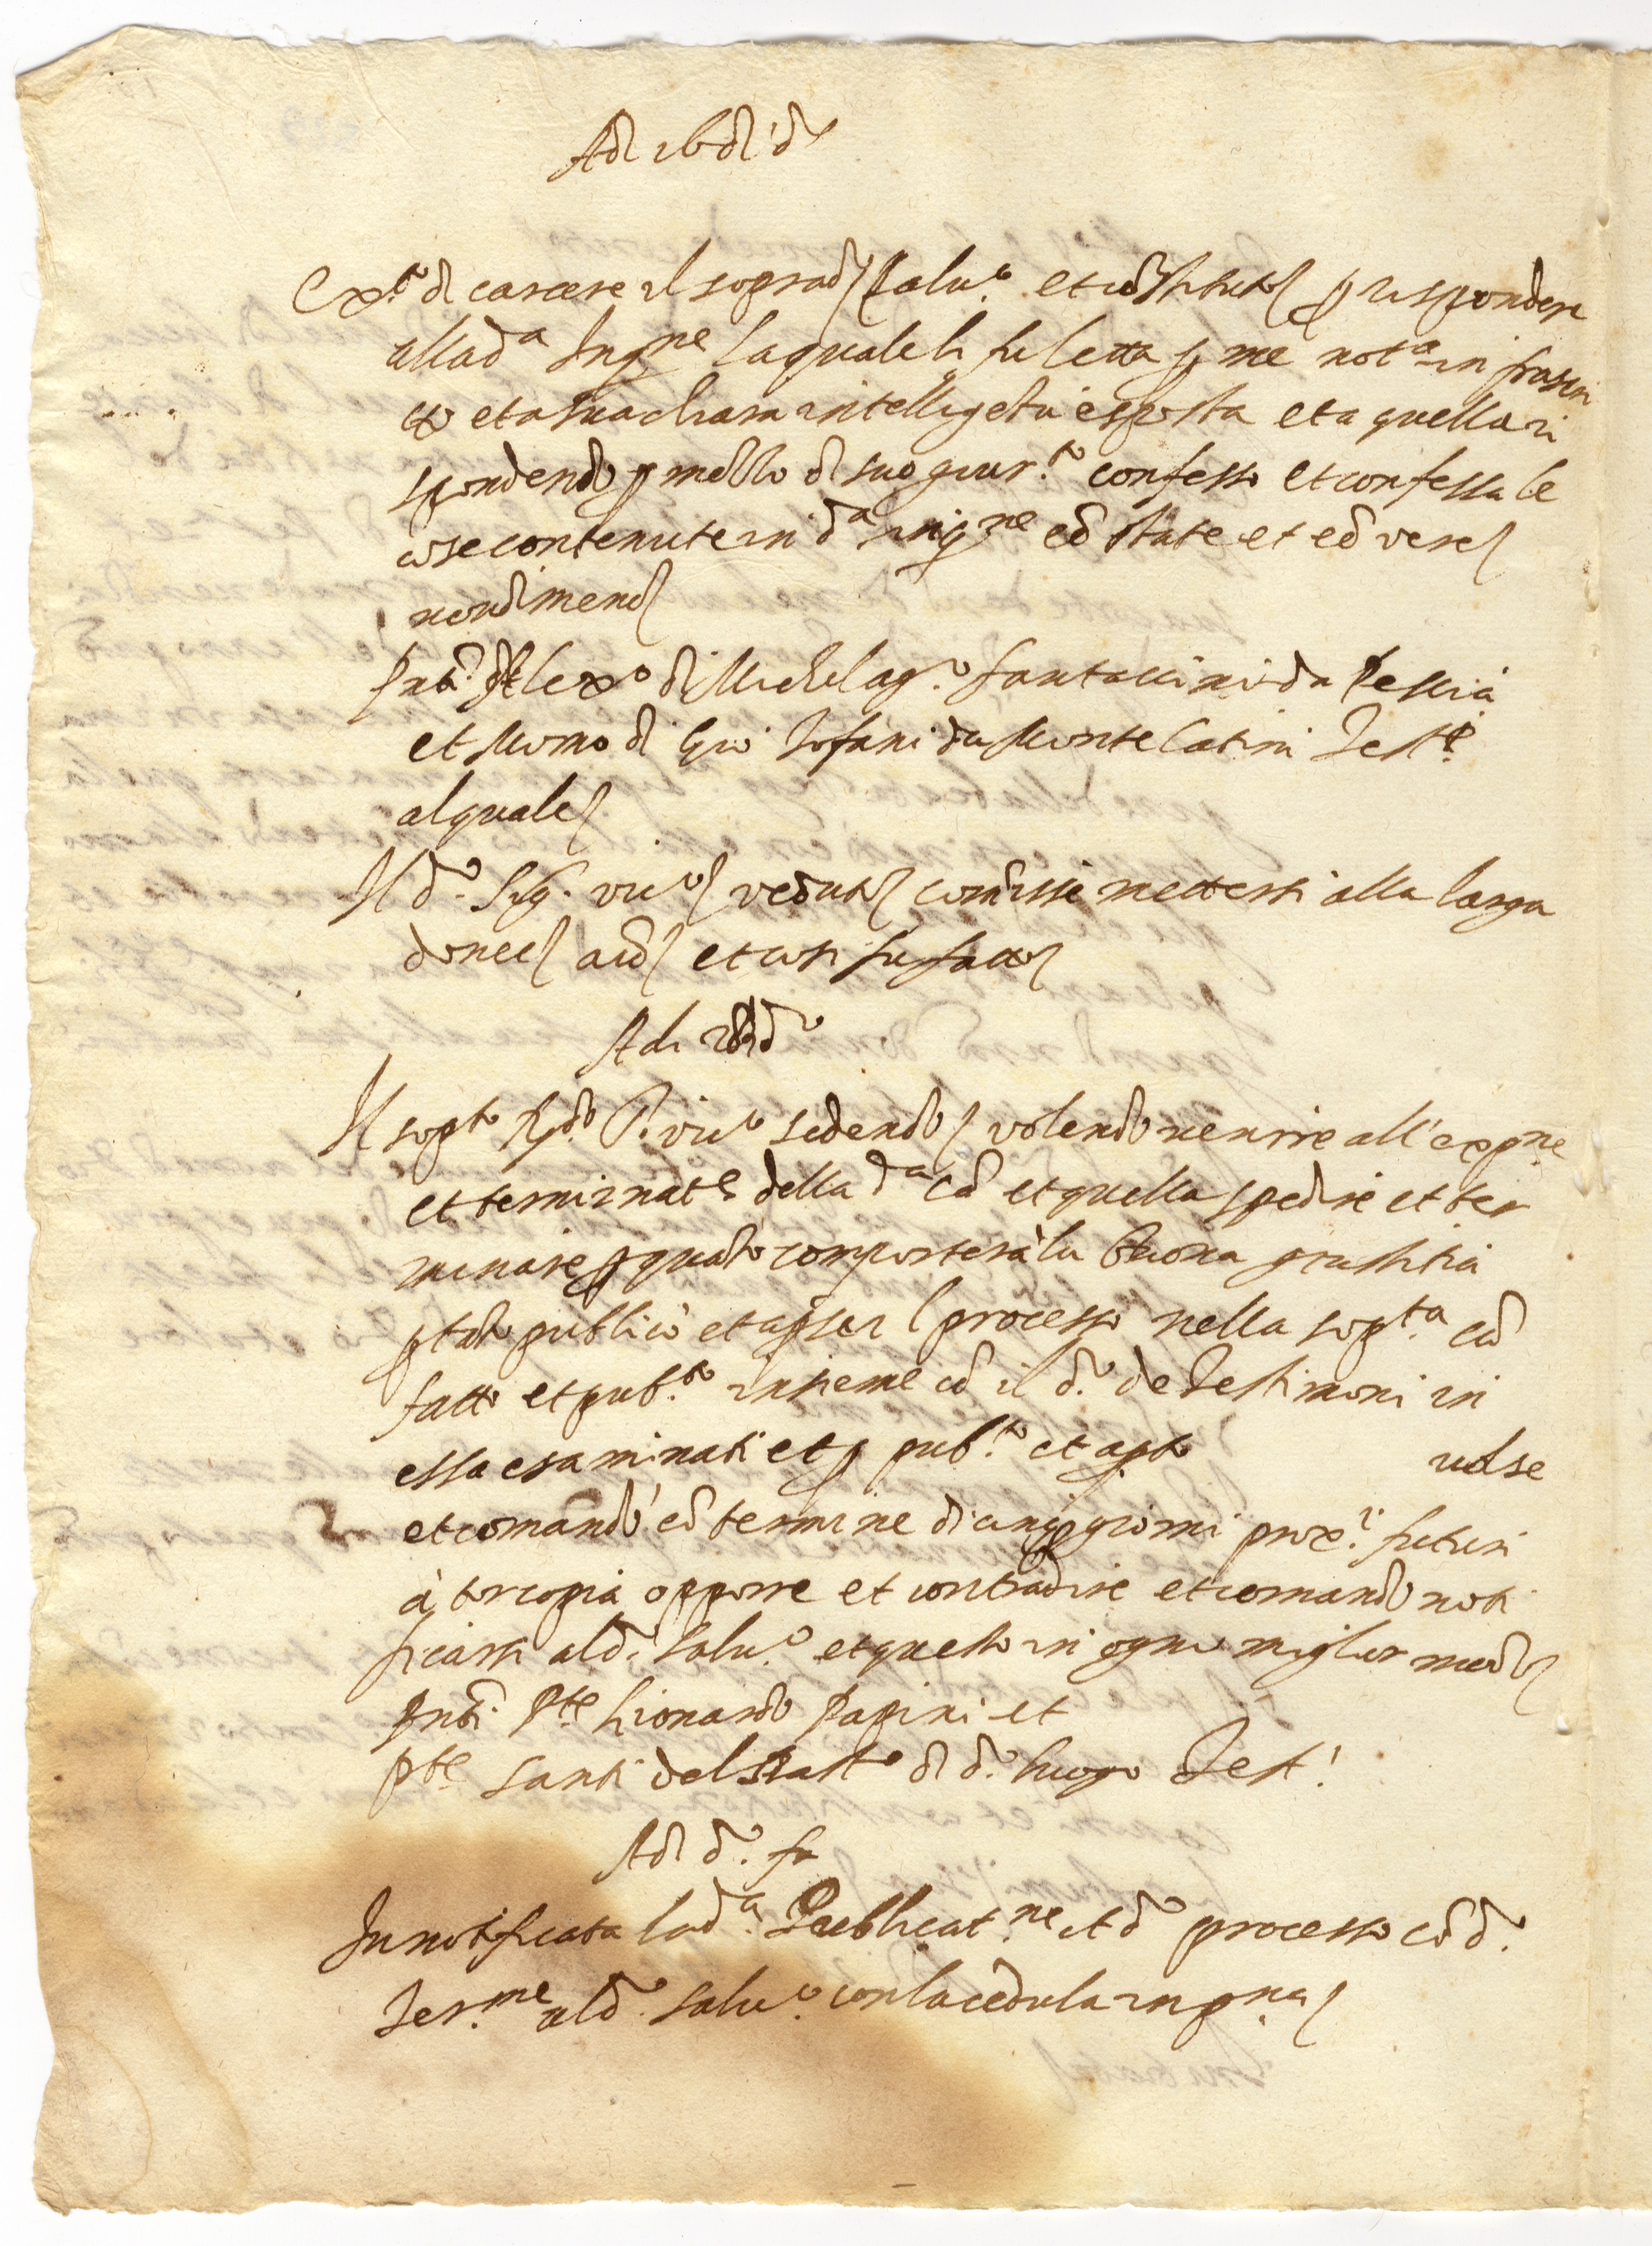 Adi 16 di dº
Exº di carcere il sopradº Salvº et cōstituto p rispondere
alla dª Inqne la quale li fu letta p me notª infrascri
tto et a sua chiara intelligētia esposta et a quella ri
spondendo p mezzo di suo giurto confesso et confessa le
cose contenute in dª inqne cō state et eē vere
nondimeno
pnti Alexº di Michelagº fantaccini da Pescia
et Momo di Giō Tofani da Monte Catini Testi
al quale
Il dº Sigr Vicº veduto comisse mettersi alla larga
donec acō et così fu fatto
Adi dº
Il soptº Rdo P. Vicº sedendo volendo venire all'expne
et terminatne della dª cā et quella spedire et ter
minare p quāto comportera la buona giustitia
ptāto publicò et apse il processo nella soptª cā
fatto et pubto insieme cō il dº de Testimoni in
essa esaminati et p pubto et apto volse
et comandò cō termine di cinq giorni proxi futuri
à tor copia opporre et contradire et comandò noti
ficarsi al dº Salvº et questo in ogni miglior modo
pnti Pte Lionardo Papini et
pte Santi del Sarto di dº luogo Testi
Adi dº fu
Fu notificata la dª Publicatne et dº processo cō dº
Terne al dº Salvº con la cedula in pna